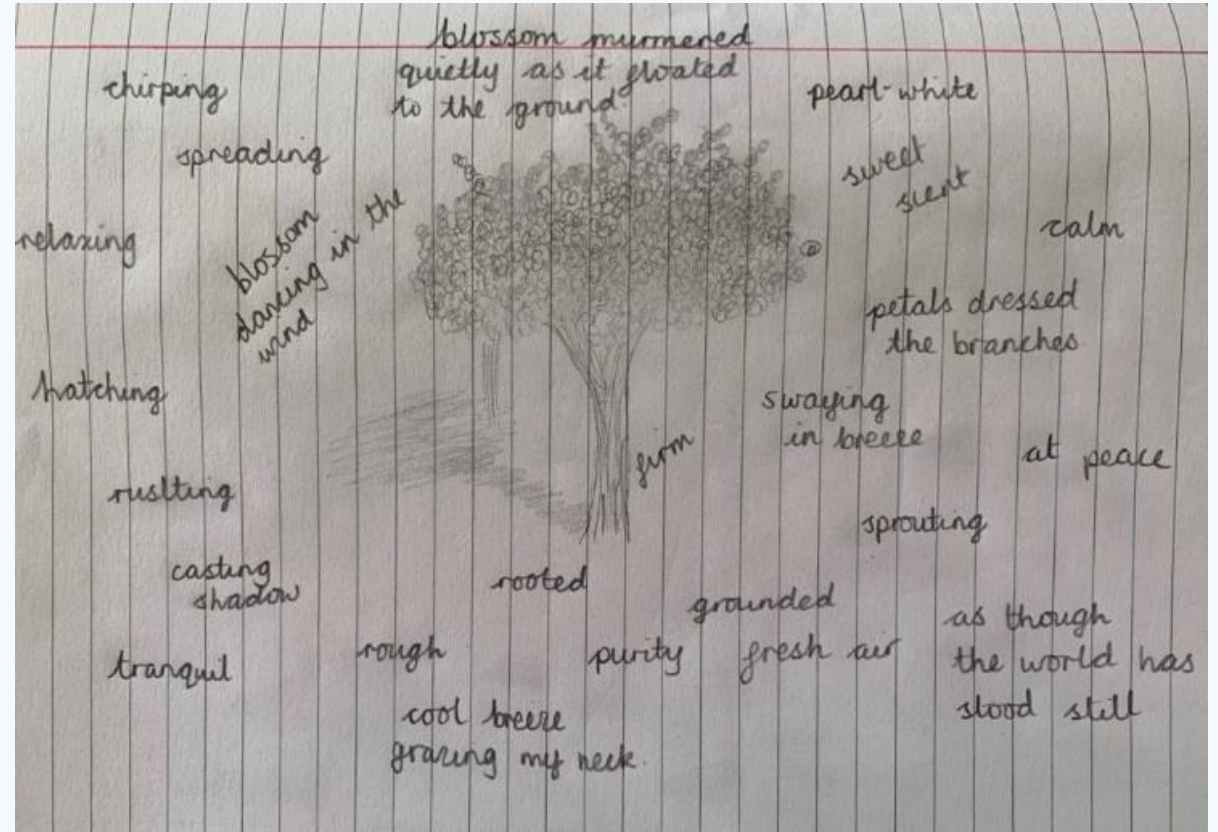 blossom murmered
quietly as it floated
to the ground.
chirping
pearl-white
spreading
sweet
scent
relaxing
blossom
dancing in the
wind
calm
petals dressed
the branches
hatching
swaying
in breeze
firm
at peace
ruslting
sprouting
casting
shadow
rooted
grounded
as though
the world has
stood still
tranquil
rough
purity
fresh air
cool breeze
grazing my neck.